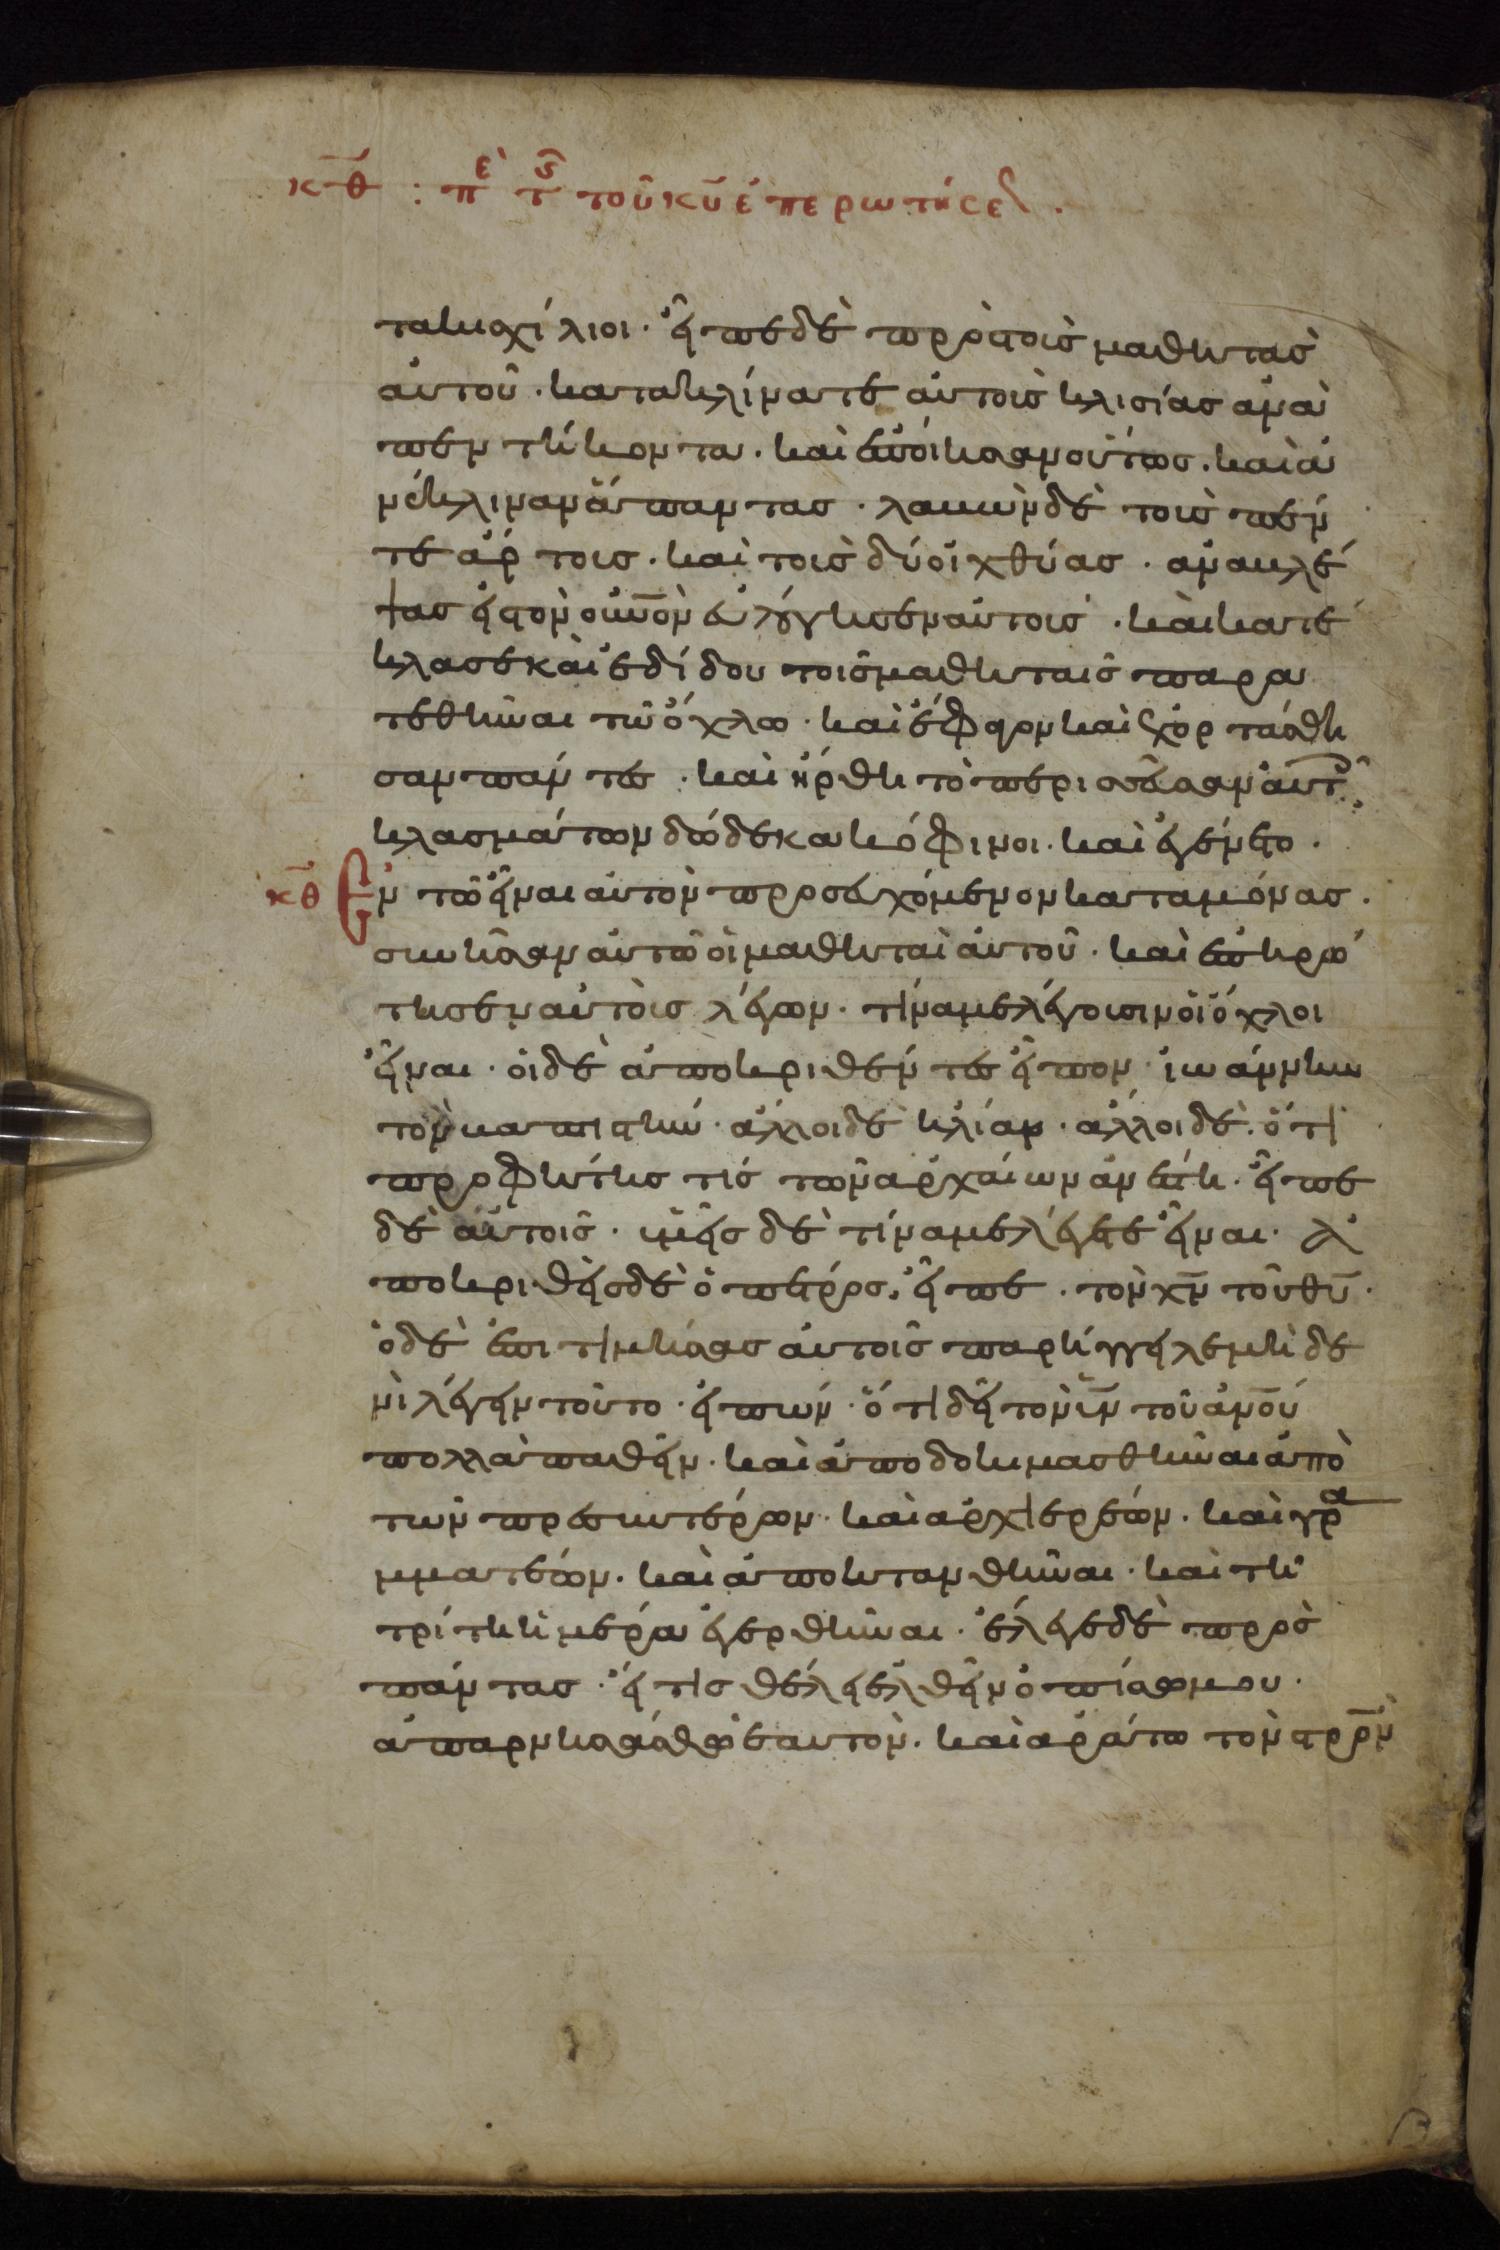 κθ : πε τς του κυ έπερωτήσε
τακισχίλιοι. εἶπε δὲ πρὸς τοὺς μαθητὰς
αὐτοῦ. κατακλίνατε αὐτοὺς κλισίας ἀνὰ
πεντήκοντα. καὶ ἐποίησαν οὕτως. καὶ ἀ
νέκλιναν ἅπαντας. λαβὼν δὲ τοὺς πέν
τε ἄρτους. καὶ τοὺς δύο ἰχθύας. ἀναβλέ
ψας εἰς τὸν οὐνὸν εὐλόγησεν αὐτούς. καὶ κατέ
κλασε καὶ ἐδίδου τοῖς μαθηταῖς παρα
τεθῆναι τῶ ὄχλω. καὶ ἔφαγον καὶ ἐχορτάσθη
σαν πάντες. καὶ ἤρθη τὸ περισσεῦσαν αὐτοῖς
κλασμάτων δώδεκα κόφινοι. καὶ ἐγένετο.
κθ Ἐν τῶ εἶναι αὐτὸν προσευχόμενον καταμόνας.
συνῆσαν αὐτῶ οἱ μαθηταὶ αὐτοῦ. καὶ ἐπηρώ
τησεν αὐτοὺς λέγων. τίνα με λέγουσιν οἱ ὄχλοι
εἶναι. οἱ δὲ ἀποκριθέντες εἶπον. ἰωάννην
τὸν βαπτιστήν. ἄλλοι δὲ ἠλίαν. ἄλλοι δὲ. ὅτι
προφήτης τίς τῶν ἀρχαίων ἀνέστη. εἶπε
δὲ αὐτοῖς. ὑμεῖς δὲ τίνα με λέγετε εἶναι. ἀ
ποκριθεὶς δὲ ὁ πέτρος. εἶπε. τὸν χν τοῦ θυ.
ὁ δὲ ἐπιτιμήσας αὐτοῖς παρήγγειλε μὴ δε
νὶ λέγειν τοῦτο. εἰπών. ὅτι δεῖ τὸν υν τοῦ ανου
πολλὰ παθεῖν. καὶ ἀποδοκιμασθῆναι ἀπὸ
τῶν πρεσβυτέρων. καὶ ἀρχιερέων. καὶ γρα
μματέων. καὶ ἀποκτανθῆναι. καὶ τῆ
τρίτη ἡμέρα ἐγερθῆναι. ἔλεγε δὲ πρὸς
πάντας. εἴ τις θέλει ἐλθεῖν ὀπίσω μου.
ἀπαρνησάσθω ἑαυτὸν. καὶ ἀράτω τὸν στρον